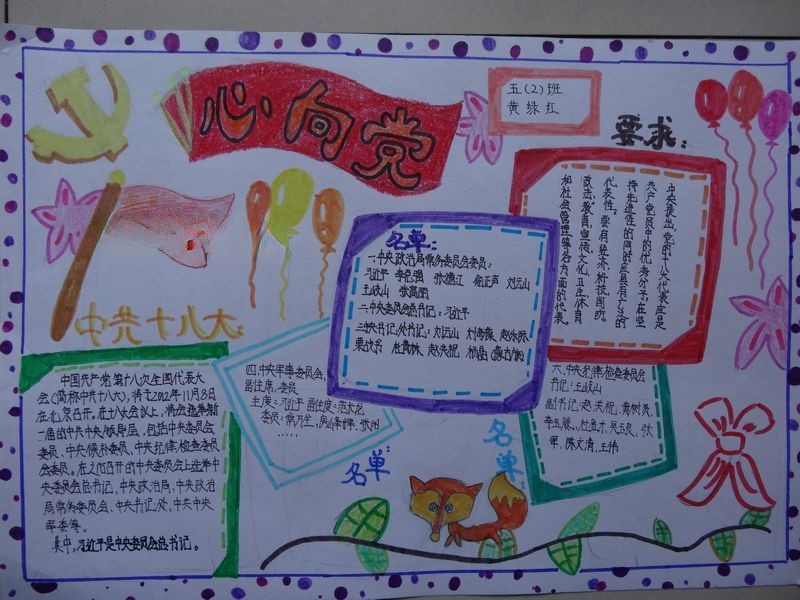 心向党
五(2)班
黄绿红
要求:
中央提出,党的十八大代表应是
共产党员中的优秀分子,在坚
持先进性的同时应具有广泛的
代表性,要有经济、科技、国防、
政法、教育、宣传、文化、卫生、体育
和社会管理等各方面的代表。
名单:
一.中央政治局常务委员会委员:
习近平 李克强 张德江 俞正声 刘云山
王岐山 张高丽
二.中央委员会总书记:习近平
三.中央书记处书记:刘云山 刘奇葆 赵乐际
栗战书 杜青林 赵洪祝 杨晶(蒙古族)
中共十八大:
中国共产党第十八次全国代表大
会(简称中共十八大),将于2012年11月8日
在北京召开。在十八大会议上,将会选举新
一届的中共中央领导层,包括中央委员会
委员、中央候补委员、中央纪律检查委员
会委员。在之后召开的中央委员会上选举中
央委员会总书记、中央政治局、中央政治
局常务委员会、中央书记处、中共中央
军委等。
其中,习近平是中央委员会总书记。
四.中央军事委员会,
副主席、委员
主席:习近平 副主席:范长龙
委员:常万全、房峰辉、张阳
……
名单:
六.中央纪律检查委员会
书记:王岐山
副书记:赵洪祝、黄树贤、
李玉赋、杜金才、吴玉良、张
军、陈文清、王伟
名单: